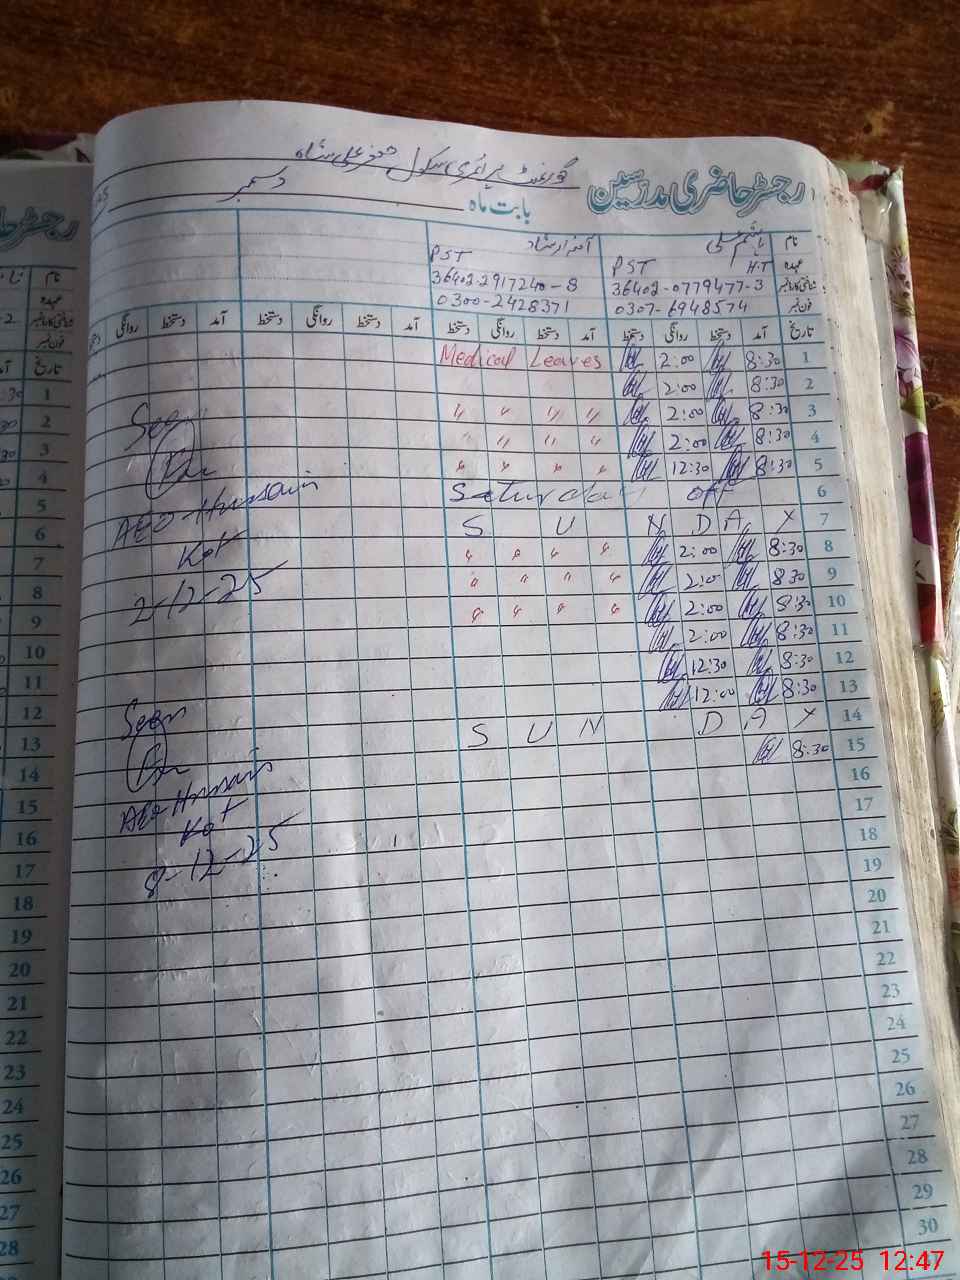 رجسٹر حاضری مدرسین
گورنمنٹ پرائمری سکول
بابت ماہ دسمبر
نام
عہدہ PST H.T PST
شناختی کارڈ نمبر 36402-0779477-3 36402-2917240-8
فون نمبر 0307-6948574 0300-2428371
تاریخ آمد دستخط روانگی دستخط آمد دستخط روانگی دستخط آمد دستخط روانگی دستخط آمد دستخط روانگی
1 8:30 2:00 Medical Leaves
2 8:30 2:00
3 8:30 2:00 " " " "
4 8:30 2:00 " " "
5 8:30 12:30 " " " "
6 Saturday off
7 S U N D A Y
8 8:30 2:00 " " " "
9 8:30 2:0 " " " "
10 8:30 2:00 " " " "
11 8:30 2:00
12 8:30 12:30
13 8:30 12:00
14 S U N D A Y
15 8:30
16
17
18
19
20
21
22
23
24
25
26
27
28
29
30
Seen
AEO-Hussain
Kot
2-12-25
Seen
AEO Hussain
Kot
8-12-25
رجسٹر حا
نام
عہدہ
شناختی کارڈ نمبر
فون نمبر
تاریخ
1
2
3
4
5
6
7
8
9
10
11
12
13
14
15
16
17
18
19
20
21
22
23
24
25
26
27
28
15-12-25 12:47